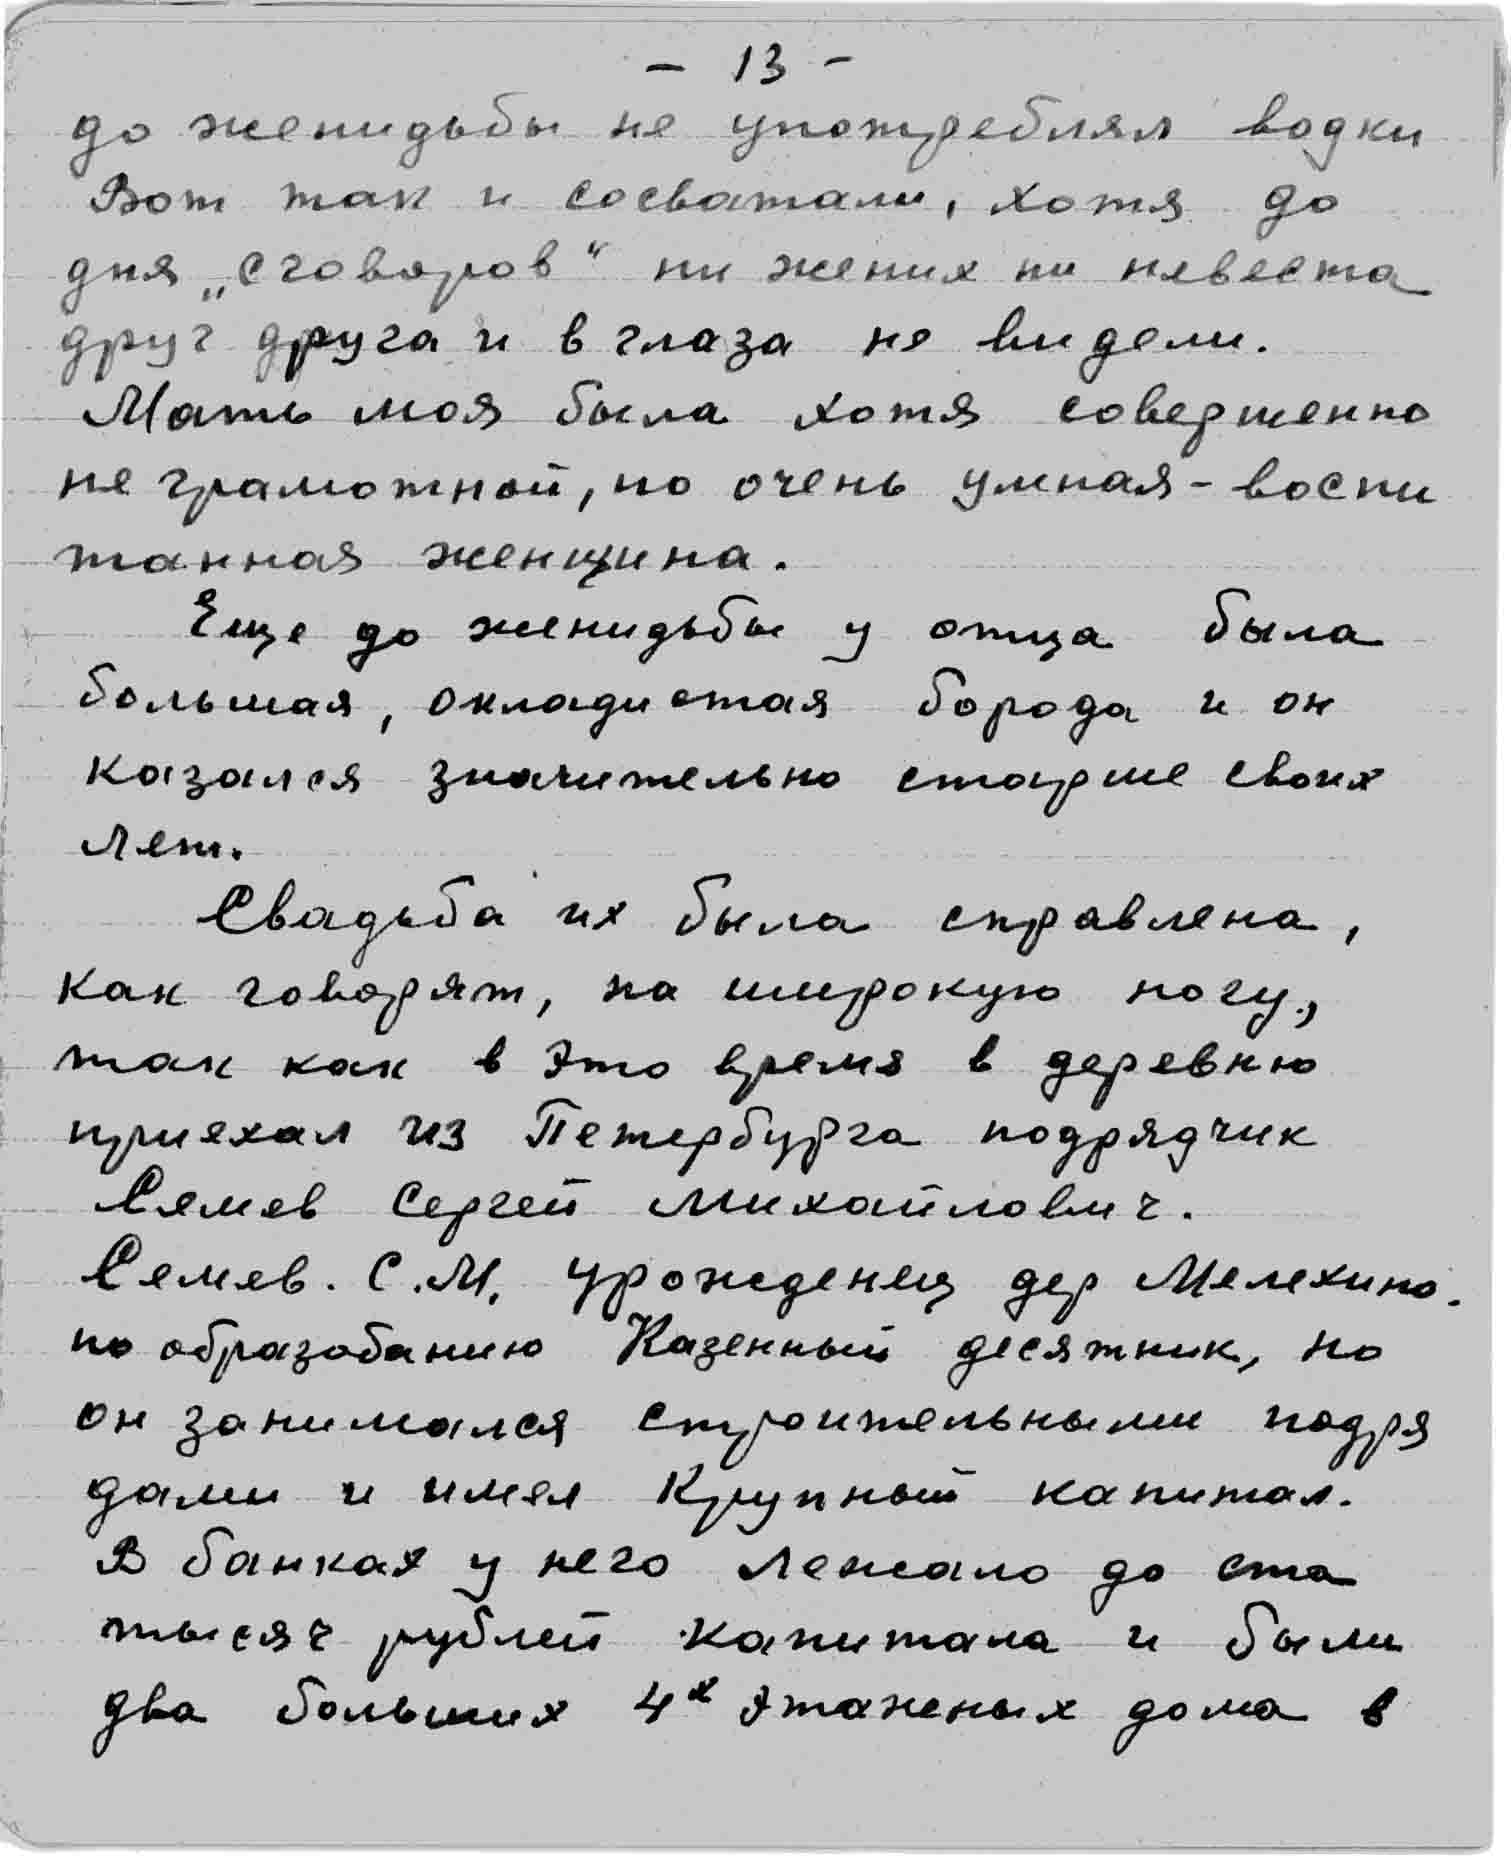 - 13 -
до женидьбы не употреблял водки
Вот так и сосватали, хотя до
дня „сговоров“ ни жених ни невеста
друг друга и в глаза не видели.
Мать моя была хотя совершенно
не грамотной, но очень умная - воспи
танная женщина.
Еще до женидьбы у отца была
большая, окладистая борода и он
казался значительно старше своих
лет.
Свадьба их была справлена,
как говорят, на широкую ногу,
так как в это время в деревню
приехал из Петербурга подрядчик
Семев Сергей Михайлович.
Семев. С.М. урожденец дер Мелехино.
по образованию Казенный десятник, но
он занимался строительными подря
дами и имел крупный капитал.
В банках у него лежало до ста
тысяч рублей капитала и были
два больших 4х этаженых дома в